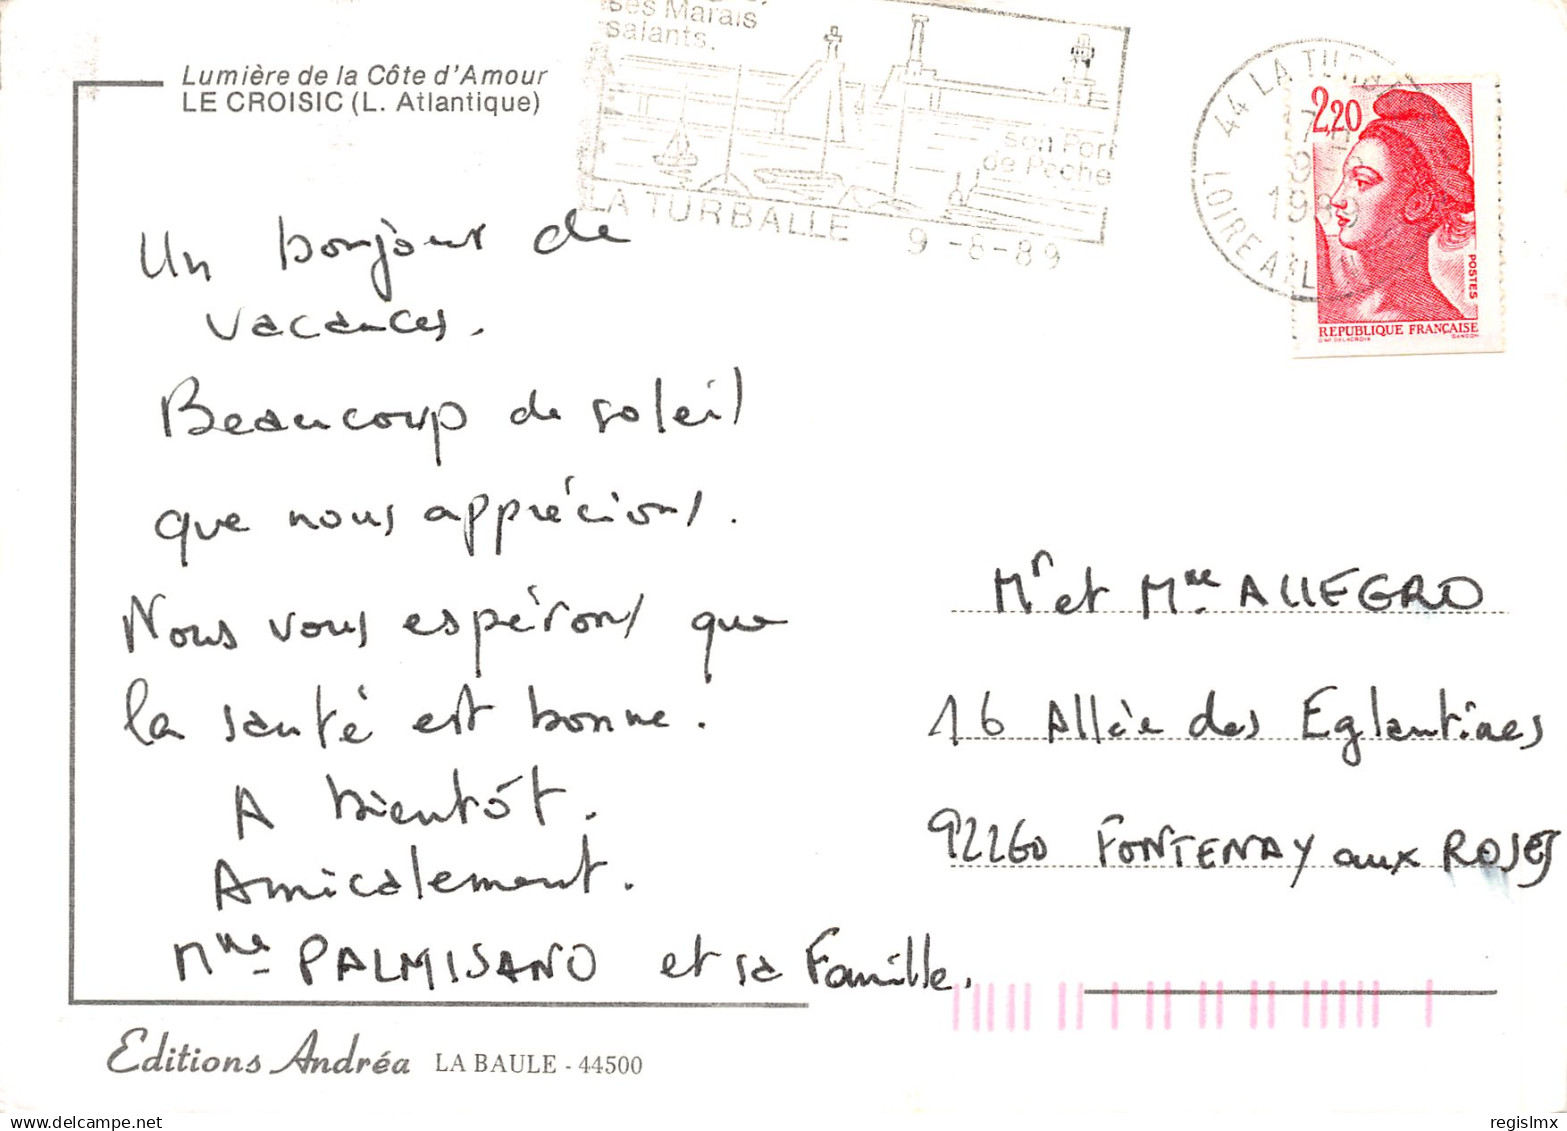 Lumière de la Côte d'Amour
LE CROISIC (L. Atlantique)
ses Marais
salants.
son Port
de Poche
LA TURBALLE 9-8-89
44 LA TURBALLE
LOIRE ATL
2,20
POSTES
REPUBLIQUE FRANÇAISE
D'AP. DELACROIX GANDON
Un bonjour de
vacances.
Beaucoup de soleil
que nous apprécions.
Nous vous espérons que
la santé est bonne.
A bientôt.
Amicalement.
Mme PALMISANO et sa Famille.
Mr et Mme ALLEGRO
16 Allée des Eglantines
92260 FONTENAY aux ROSES
Editions Andréa LA BAULE - 44500
regislmx